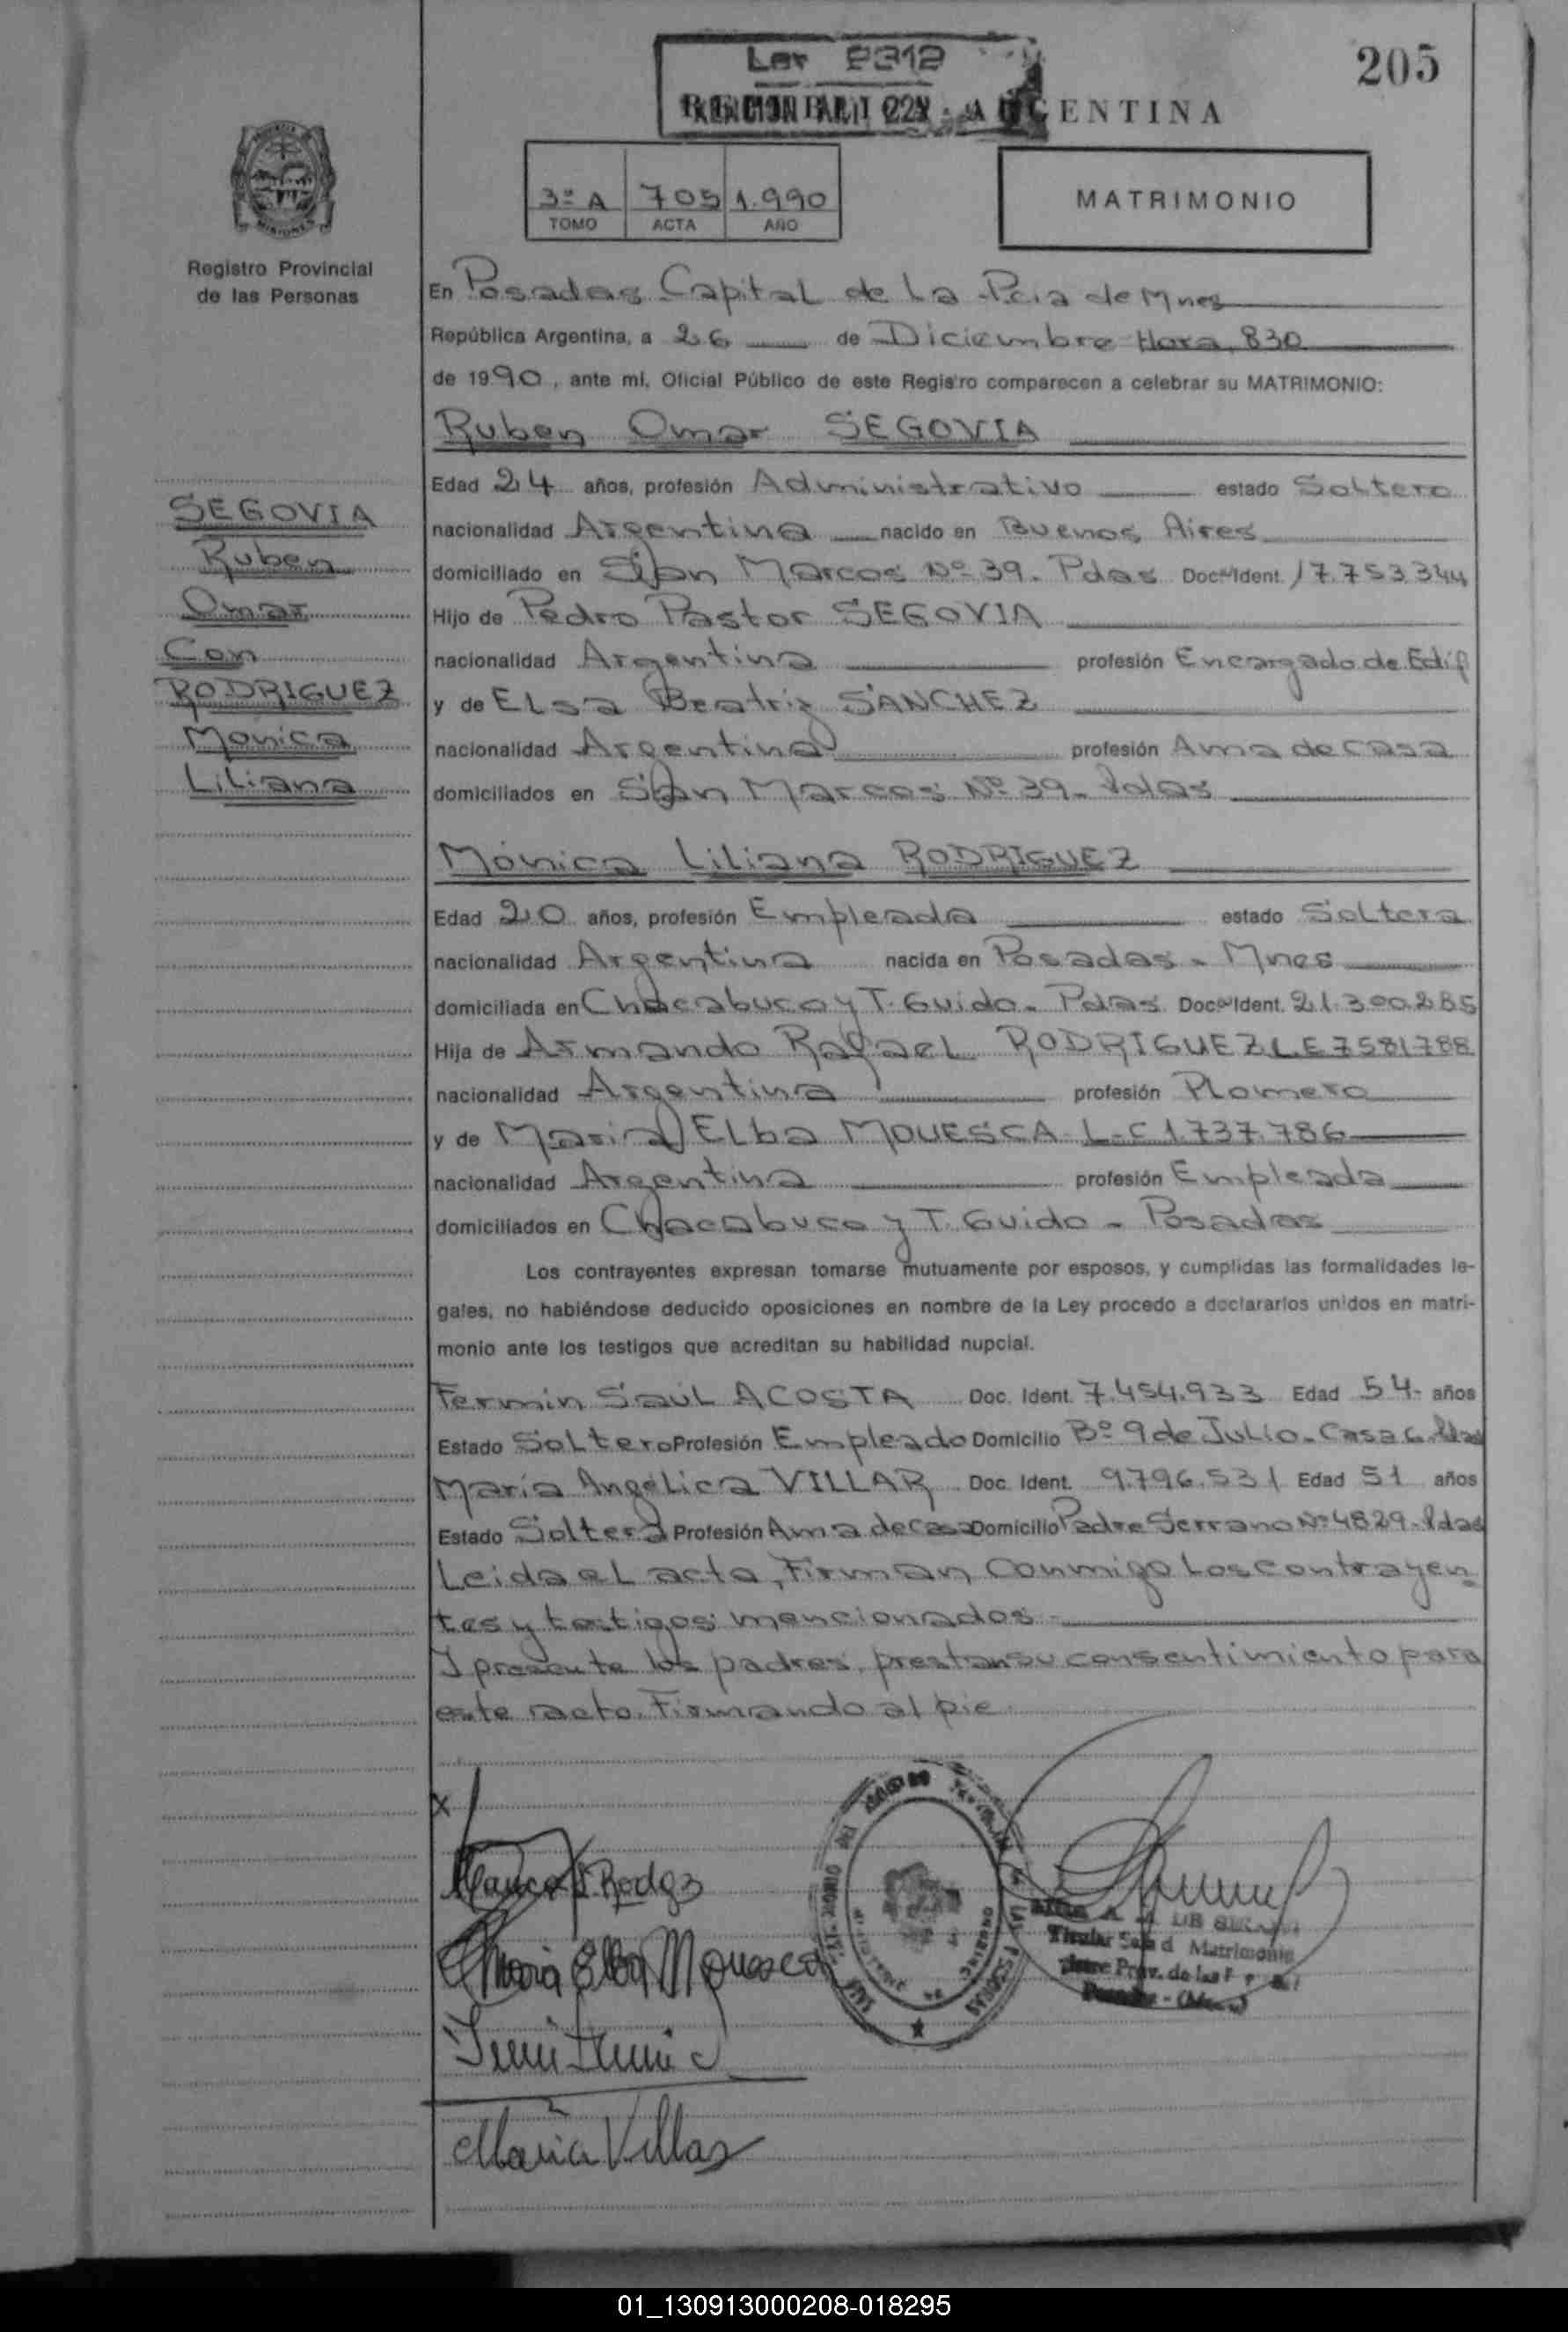 205
Ley 2312
ARGENTINA
3º A 705 1.990
TOMO ACTA AÑO
MATRIMONIO
Registro Provincial
de las Personas
En Posadas Capital de La Pcia de Mnes
República Argentina, a 26 de Diciembre Hora 830
de 1990, ante mí, Oficial Público de este Registro comparecen a celebrar su MATRIMONIO:
Ruben Omar SEGOVIA
Edad 24 años, profesión Administrativo estado Soltero
nacionalidad Argentina nacido en Buenos Aires
domiciliado en San Marcos Nº 39. Pdas Doc. Ident. 17.753.344
Hijo de Pedro Pastor SEGOVIA
nacionalidad Argentina profesión Encargado de Edif
y de Elsa Beatriz SANCHEZ
nacionalidad Argentina profesión Ama de casa
domiciliados en San Marcos Nº 39 - Pdas
SEGOVIA
Ruben
Omar
Con
RODRIGUEZ
Monica
Liliana
Mónica Liliana RODRIGUEZ
Edad 20 años, profesión Empleada estado Soltera
nacionalidad Argentina nacida en Posadas - Mnes
domiciliada en Chacabuco y T. Guido - Pdas Doc. Ident. 21.300.285
Hija de Armando Rafael RODRIGUEZ L.E 7581788
nacionalidad Argentina profesión Plomero
y de Maria Elba MOUESCA L-C 1.737.786
nacionalidad Argentina profesión Empleada
domiciliados en Chacabuco y T. Guido - Posadas
Los contrayentes expresan tomarse mutuamente por esposos, y cumplidas las formalidades le-
gales, no habiéndose deducido oposiciones en nombre de la Ley procedo a declararlos unidos en matri-
monio ante los testigos que acreditan su habilidad nupcial.
Fermín Saúl ACOSTA Doc. Ident. 7.454.933 Edad 54- años
Estado Soltero Profesión Empleado Domicilio Bº 9 de Julio - Casa 6. Pdas
María Angélica VILLAR Doc. Ident. 9.796.531 Edad 51 años
Estado Soltera Profesión Ama de casa Domicilio Padre Serrano Nº 4829 - Pdas
Leida el acta, Firman conmigo los contrayen
tes y testigos mencionados -
y presente los padres, prestan su consentimiento para
este acto. Firmando al pie.
Maria Elba Mouesca
Titular Matrimonio
Prov. de las
María Villar
01_130913000208-018295